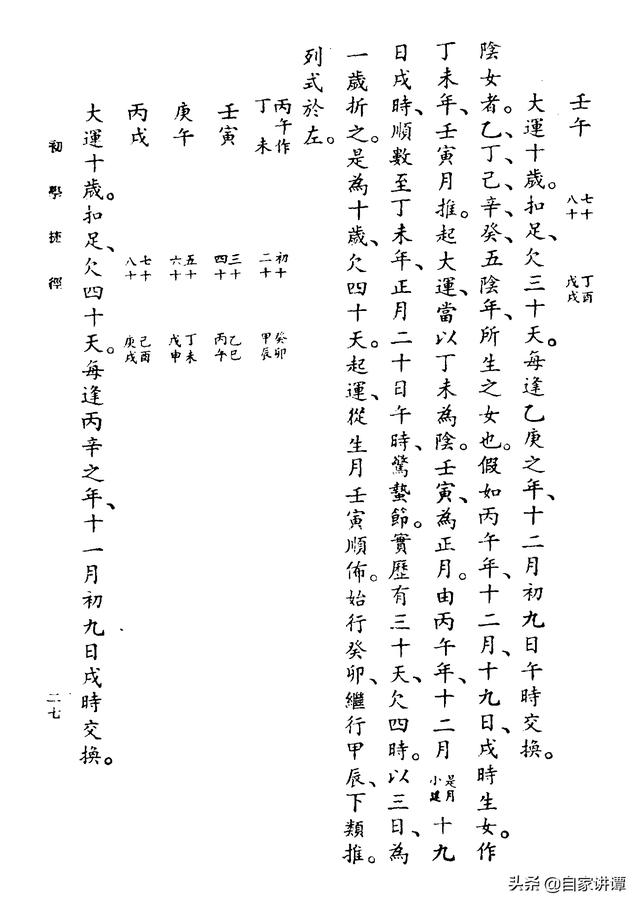 壬午　七十 八十　丁酉 戊戌
大運十歲。扣足、欠三十天。每逢乙庚之年、十二月初九日午時交換。
陰女者。乙、丁、己、辛、癸、五陰年、所生之女也。假如丙午年、十二月、十九日、戌時生女。作
丁未年、壬寅月推。起大運、當以丁未為陰。壬寅、為正月。由丙午年、十二月是月小建十九
日戌時、順數至丁未年、正月二十日午時、驚蟄節。實歷有三十天、欠四時。以三日、為
一歲折之。是為十歲、欠四十天。起運、從生月壬寅順佈。始行癸卯、繼行甲辰、下類推。
列式於左。
丙午作丁未　初十 二十　癸卯 甲辰
壬寅　三十 四十　乙巳 丙午
庚午　五十 六十　丁未 戊申
丙戌　七十 八十　己酉 庚戌
大運十歲。扣足、欠四十天。每逢丙辛之年、十一月初九日戌時交換。
初學捷徑
二七
头条@自家讲谭